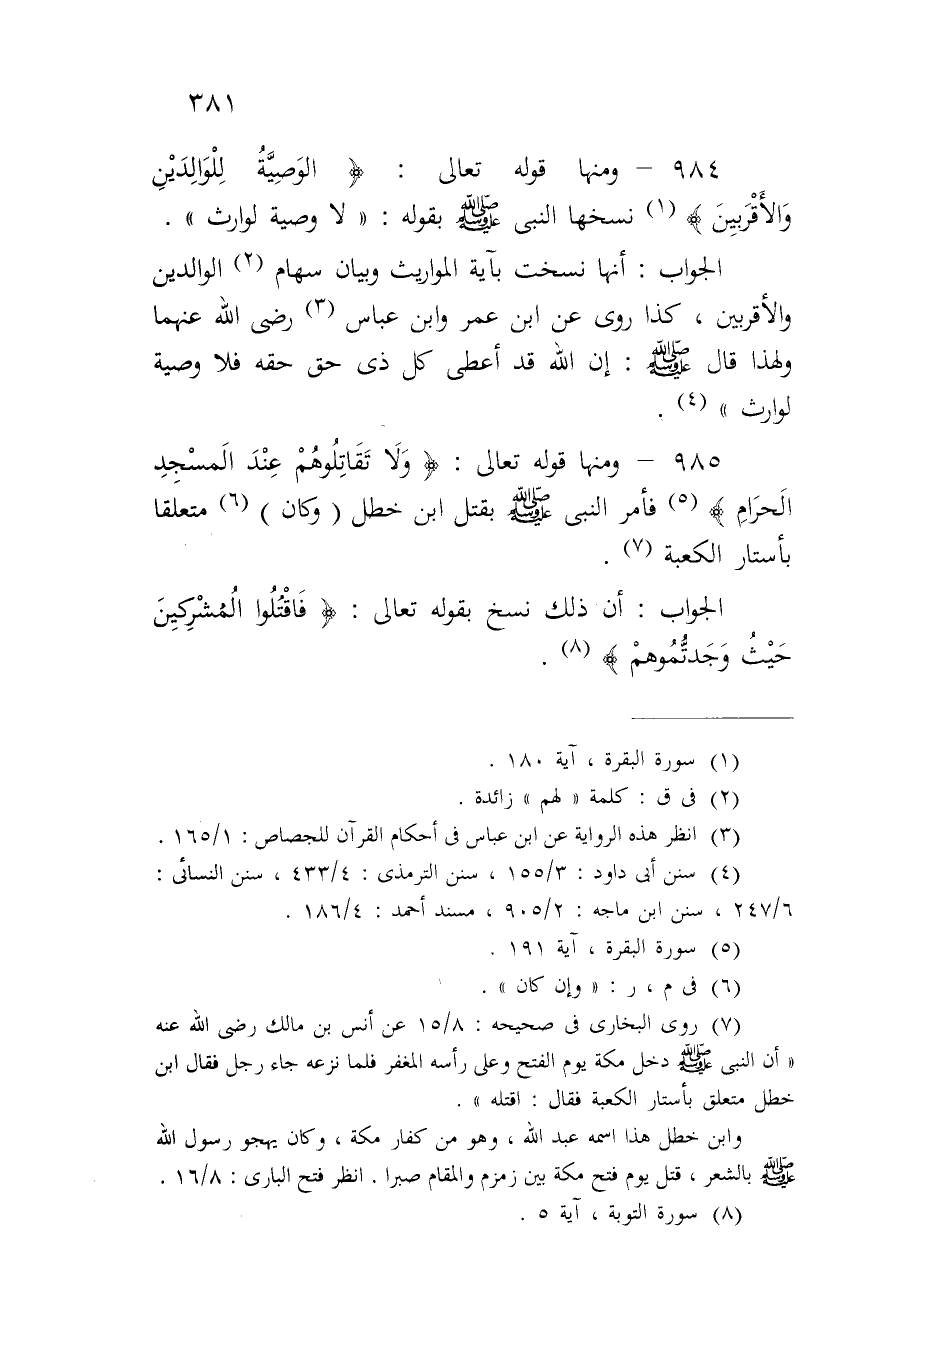 ٣٨١
٩٨٤ – ومنها قوله تعالى : ﴿ الوَصِيَّةُ لِلْوَالِدَيْنِ
وَالأَقْرَبِينَ ﴾ (١) نسخها النبى ﷺ بقوله : « لا وصية لوارث » .
الجواب : أنها نسخت بآية المواريث وبيان سهام (٢) الوالدين
والأقربين ، كذا روى عن ابن عمر وابن عباس (٣) رضى الله عنهما
ولهذا قال ﷺ : إن الله قد أعطى كل ذى حق حقه فلا وصية
لوارث » (٤) .
٩٨٥ – ومنها قوله تعالى : ﴿ وَلَا تَقَاتِلُوهُمْ عِنْدَ الَمسْجِدِ
الَحرَامِ ﴾ (٥) فأمر النبى ﷺ بقتل ابن خطل ( وكان ) (٦) متعلقا
بأستار الكعبة (٧) .
الجواب : أن ذلك نسخ بقوله تعالى : ﴿ فَاقْتُلُوا الُمشْرِكِينَ
حَيْثُ وَجَدتُّمُوهمْ ﴾ (٨) .
(١) سورة البقرة ، آية ١٨٠ .
(٢) فى ق : كلمة « لهم » زائدة .
(٣) انظر هذه الرواية عن ابن عباس فى أحكام القرآن للجصاص : ١٦٥/١ .
(٤) سنن أبى داود : ١٥٥/٣ ، سنن الترمذى : ٤٣٣/٤ ، سنن النسائى :
٢٤٧/٦ ، سنن ابن ماجه : ٩٠٥/٢ ، مسند أحمد : ١٨٦/٤ .
(٥) سورة البقرة ، آية ١٩١ .
(٦) فى م ، ر : « وإن كان » .
(٧) روى البخارى فى صحيحه : ١٥/٨ عن أنس بن مالك رضى الله عنه
« أن النبى ﷺ دخل مكة يوم الفتح وعلى رأسه المغفر فلما نزعه جاء رجل فقال ابن
خطل متعلق بأستار الكعبة فقال : اقتله » .
وابن خطل هذا اسمه عبد الله ، وهو من كفار مكة ، وكان يهجو رسول الله
ﷺ بالشعر ، قتل يوم فتح مكة بين زمزم والمقام صبرا . انظر فتح البارى : ١٦/٨ .
(٨) سورة التوبة ، آية ٥ .